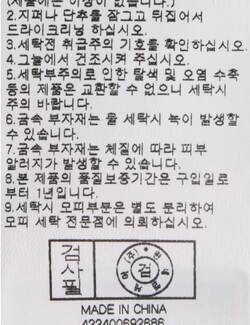 (제품에는 이상이 없습니다.)
2.지퍼나 단추를 잠그고 뒤집어서
드라이크리닝 하십시오.
3.세탁전 취급주의 기호를 확인하십시오.
4.그늘에서 건조시켜 주십시오.
5.세탁부주의로 인한 탈색 및 오염 수축
등의 제품은 교환할 수 없으니 세탁시
주의 바랍니다.
6.금속 부자재는 물 세탁시 녹이 발생할
수 있습니다.
7.금속 부자재는 체질에 따라 피부
알러지가 발생할 수 있습니다.
8.본 제품의 품질보증기간은 구입일로
부터 1년입니다.
9.세탁시 모피부분은 별도 분리하여
모피 세탁 전문점에 의뢰하십시오.
검사필
검
MADE IN CHINA